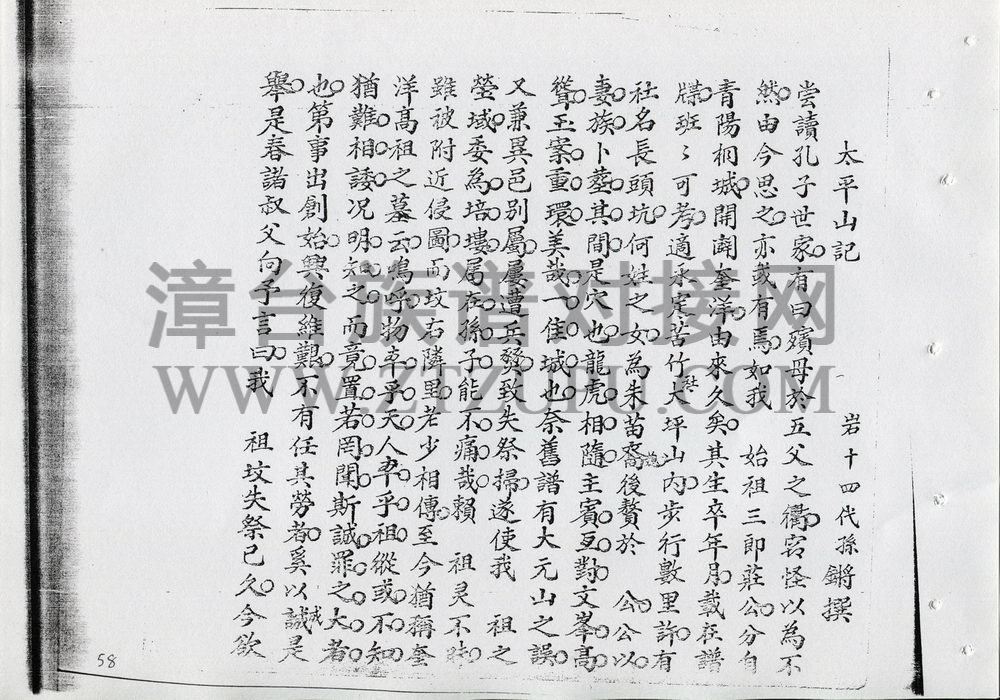 太平山記
岩十四代孫鏘撰
嘗讀孔子世家有曰殯母於五父之衢窃怪以為不
然由今思之亦豈有焉如我 始祖三郎莊公分自
青陽桐城開闢奎洋由來久矣其生卒年月載在譜
牒班〻可考適永定苦竹社大坪山內步行數里許有
社名長頭坑何姓之女為朱苗裔後贅於 公公以
妻族卜塟其間是穴也龍虎相隨主賓互對文峯高
聳玉案重環美哉一佳城也奈舊譜有大元山之誤
又兼異邑别屬屢遭兵發致失祭掃遂使我 祖之
塋域委為培塿属在孫子能不痛哉賴 祖灵不昧
雖被附近侵圖而坟右隣里老少相傳至今猶稱奎
洋高祖之墓云嗚呼物本乎天人本乎祖縱或不知
猶難相諉况明知之而竟置若罔聞斯誠罪之大者
也第事出創始興復維艱不有任其勞者奚以誠是
舉是春諸叔父向予言曰我 祖坟失祭已久今欲
58
漳台族谱对接网
WWW.ZTZUPU.COM